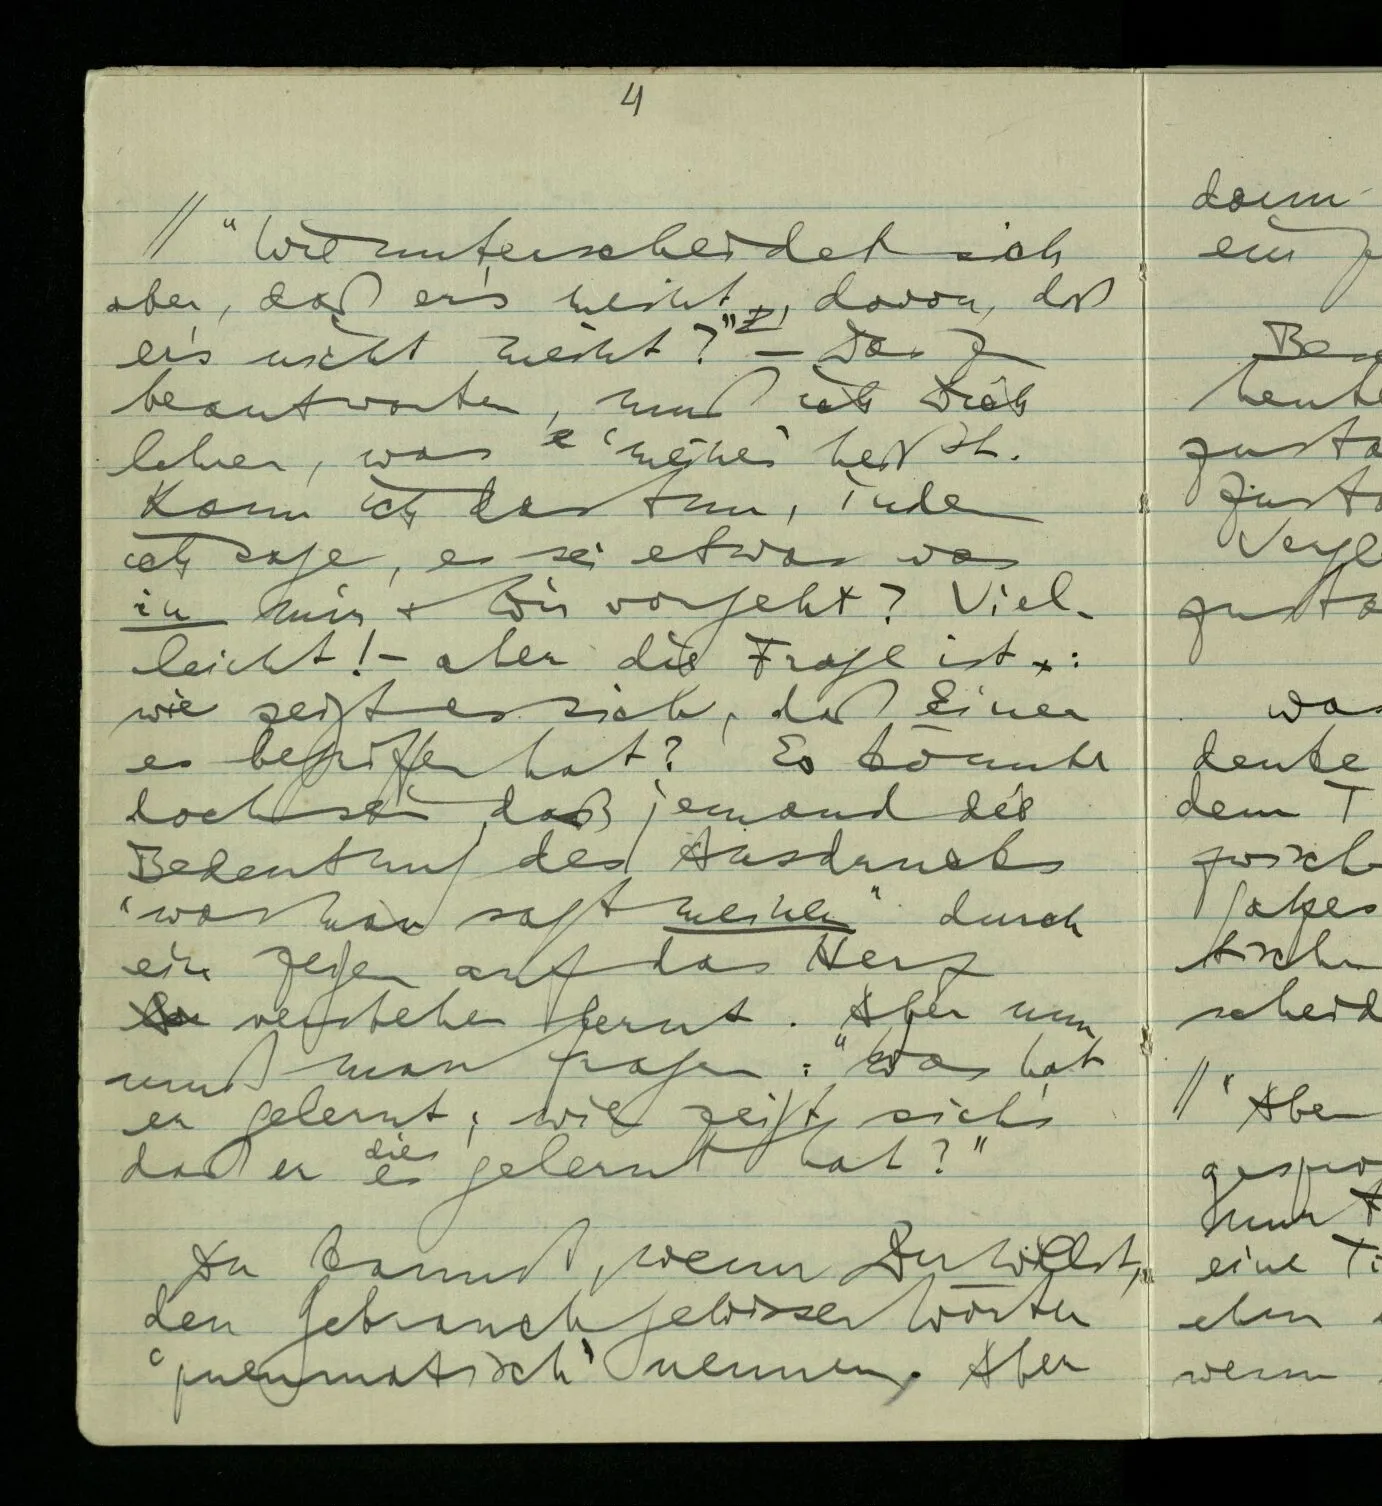 4
// "Wie unterscheidet sich
aber, daß er's meint, davon, daß
er's nicht meint?" – Das zu
beantworten, muß ich Dich
lehren, was 'meinen' heißt.
Kann ich das tun, indem
ich sage, es sei etwas was
in mir + Dir vorgeht? Viel-
leicht! – aber die Frage ist:
wie zeigt es sich, daß Einer
es begriffen hat? Es könnte
doch sein daß jemand die
Bedeutung des Ausdrucks
"was man sagt meinen" durch
ein zeigen auf das Herz
verstehen lernt. Aber nun
muß man fragen: "Was hat
er gelernt; wie zeigt sich's
daß er dies gelernt hat?"
Du kannst, wenn Du willst,
den Gebrauch gewisser Wörter
'pneumatisch' nennen. Aber
dann
ein
heute
was
denke
dem
scheid
// "Aber
eine
eben
wenn